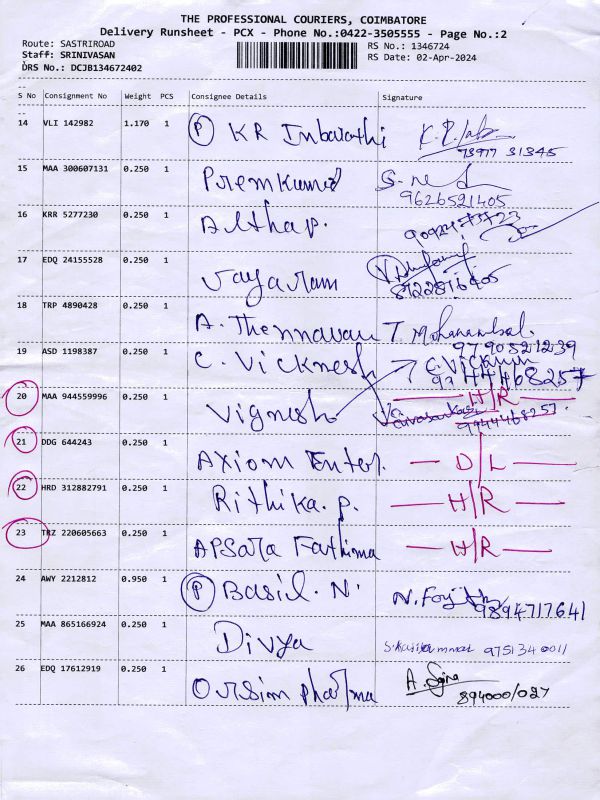 THE PROFESSIONAL COURIERS, COIMBATORE
Delivery Runsheet - PCX - Phone No.:0422-3505555 - Page No.:2
Route: SASTRIROAD
Staff: SRINIVASAN
DRS No.: DCJB134672402
RS No.: 1346724
RS Date: 02-Apr-2024
S No Consignment No Weight PCS Consignee Details Signature
14 VLI 142982 1.170 1 P KR Inbarathi
73977 31345
15 MAA 300607131 0.250 1 Premkumar
9626521405
16 KRR 5277230 0.250 1 Altha p.
17 EDQ 24155528 0.250 1 Jayaram
18 TRP 4890428 0.250 1 A. Thennavan T. Mohanambal.
9790521239
19 ASD 1198387 0.250 1 C. Vicknesh C. Vicknesh
9444468257
20 MAA 944559996 0.250 1 Vignesh H/R
9944468257
21 DDG 644243 0.250 1 Axiom Enter. D/L
22 HRD 312882791 0.250 1 Rithika. p. H/R
23 TRZ 220605663 0.250 1 Apsara Fathima H/R
24 AWY 2212812 0.950 1 P Basil. N.
9894717641
25 MAA 865166924 0.250 1 Divya 9751340011
26 EDQ 17612919 0.250 1 Orsim pharma
894000/027